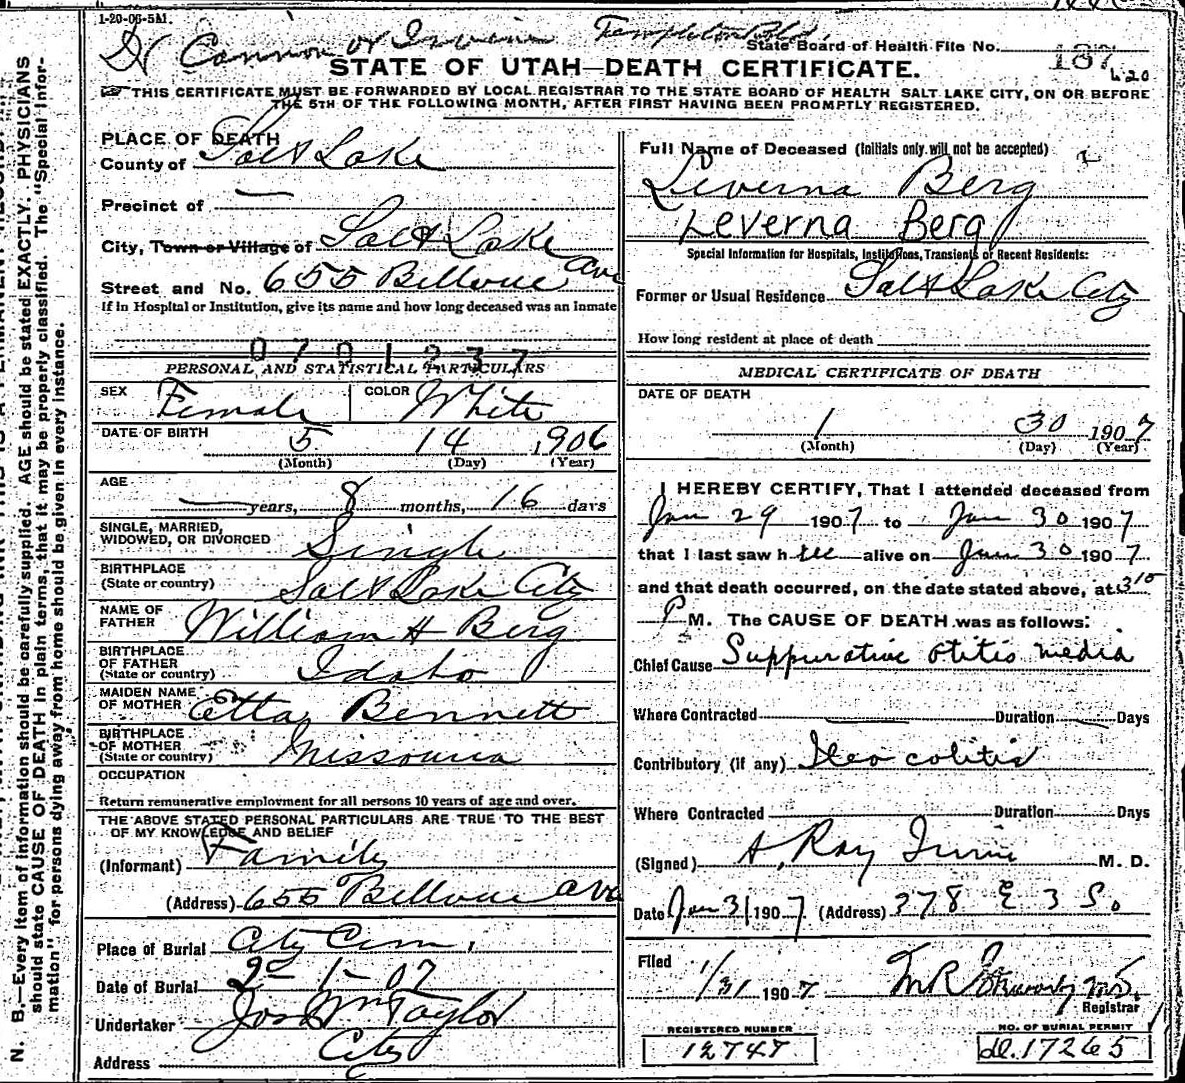 1-20-06-5M.
Dr Cannon or Irvine Templeton Bld.
State Board of Health File No. 187
420
STATE OF UTAH—DEATH CERTIFICATE.
THIS CERTIFICATE MUST BE FORWARDED BY LOCAL REGISTRAR TO THE STATE BOARD OF HEALTH SALT LAKE CITY, ON OR BEFORE
THE 5TH OF THE FOLLOWING MONTH, AFTER FIRST HAVING BEEN PROMPTLY REGISTERED.
N. B.—Every item of information should be carefully supplied. AGE should be stated EXACTLY. PHYSICIANS
should state CAUSE OF DEATH in plain terms, that it may be properly classified. The "Special Infor-
mation" for persons dying away from home should be given in every instance.
PLACE OF DEATH
County of Salt Lake
Precinct of —
City, Town or Village of Salt Lake
Street and No. 655 Bellevue ave
If in Hospital or Institution, give its name and how long deceased was an inmate
0701237
PERSONAL AND STATISTICAL PARTICULARS
SEX Female COLOR White
DATE OF BIRTH 5 14 1906
(Month) (Day) (Year)
AGE
— years, 8 months, 16 days
SINGLE, MARRIED,
WIDOWED, OR DIVORCED Single
BIRTHPLACE
(State or country) Salt Lake City
NAME OF
FATHER William H Berg
BIRTHPLACE
OF FATHER
(State or country) Idaho
MAIDEN NAME
OF MOTHER Etta Bennett
BIRTHPLACE
OF MOTHER
(State or country) Missouria
OCCUPATION
Return remunerative employment for all persons 10 years of age and over.
THE ABOVE STATED PERSONAL PARTICULARS ARE TRUE TO THE BEST
OF MY KNOWLEDGE AND BELIEF
(Informant) Family
(Address) 655 Bellevue ave
Place of Burial City Cem.
Date of Burial 2-1-07
Undertaker Jos Wm Taylor
Address City
Full Name of Deceased (Initials only will not be accepted)
Leverna Berg
Leverna Berg
Special Information for Hospitals, Institutions, Transients or Recent Residents:
Former or Usual Residence Salt Lake City
How long resident at place of death
MEDICAL CERTIFICATE OF DEATH
DATE OF DEATH
1 30 1907
(Month) (Day) (Year)
I HEREBY CERTIFY, That I attended deceased from
Jan 29 1907 to Jan 30 1907
that I last saw her alive on Jan 30 1907
and that death occurred, on the date stated above, at 3 15
P M. The CAUSE OF DEATH was as follows:
Chief Cause Suppurative otitis media
Where Contracted — Duration — Days
Contributory (if any) Ileo colitis
Where Contracted Duration Days
(Signed) A, Ray Irvine M. D.
Date Jan 31 1907 (Address) 378 E 3 So
Filed
1/31 1907 M.D.
Registrar
REGISTERED NUMBER
12747
NO. OF BURIAL PERMIT
dl.17265